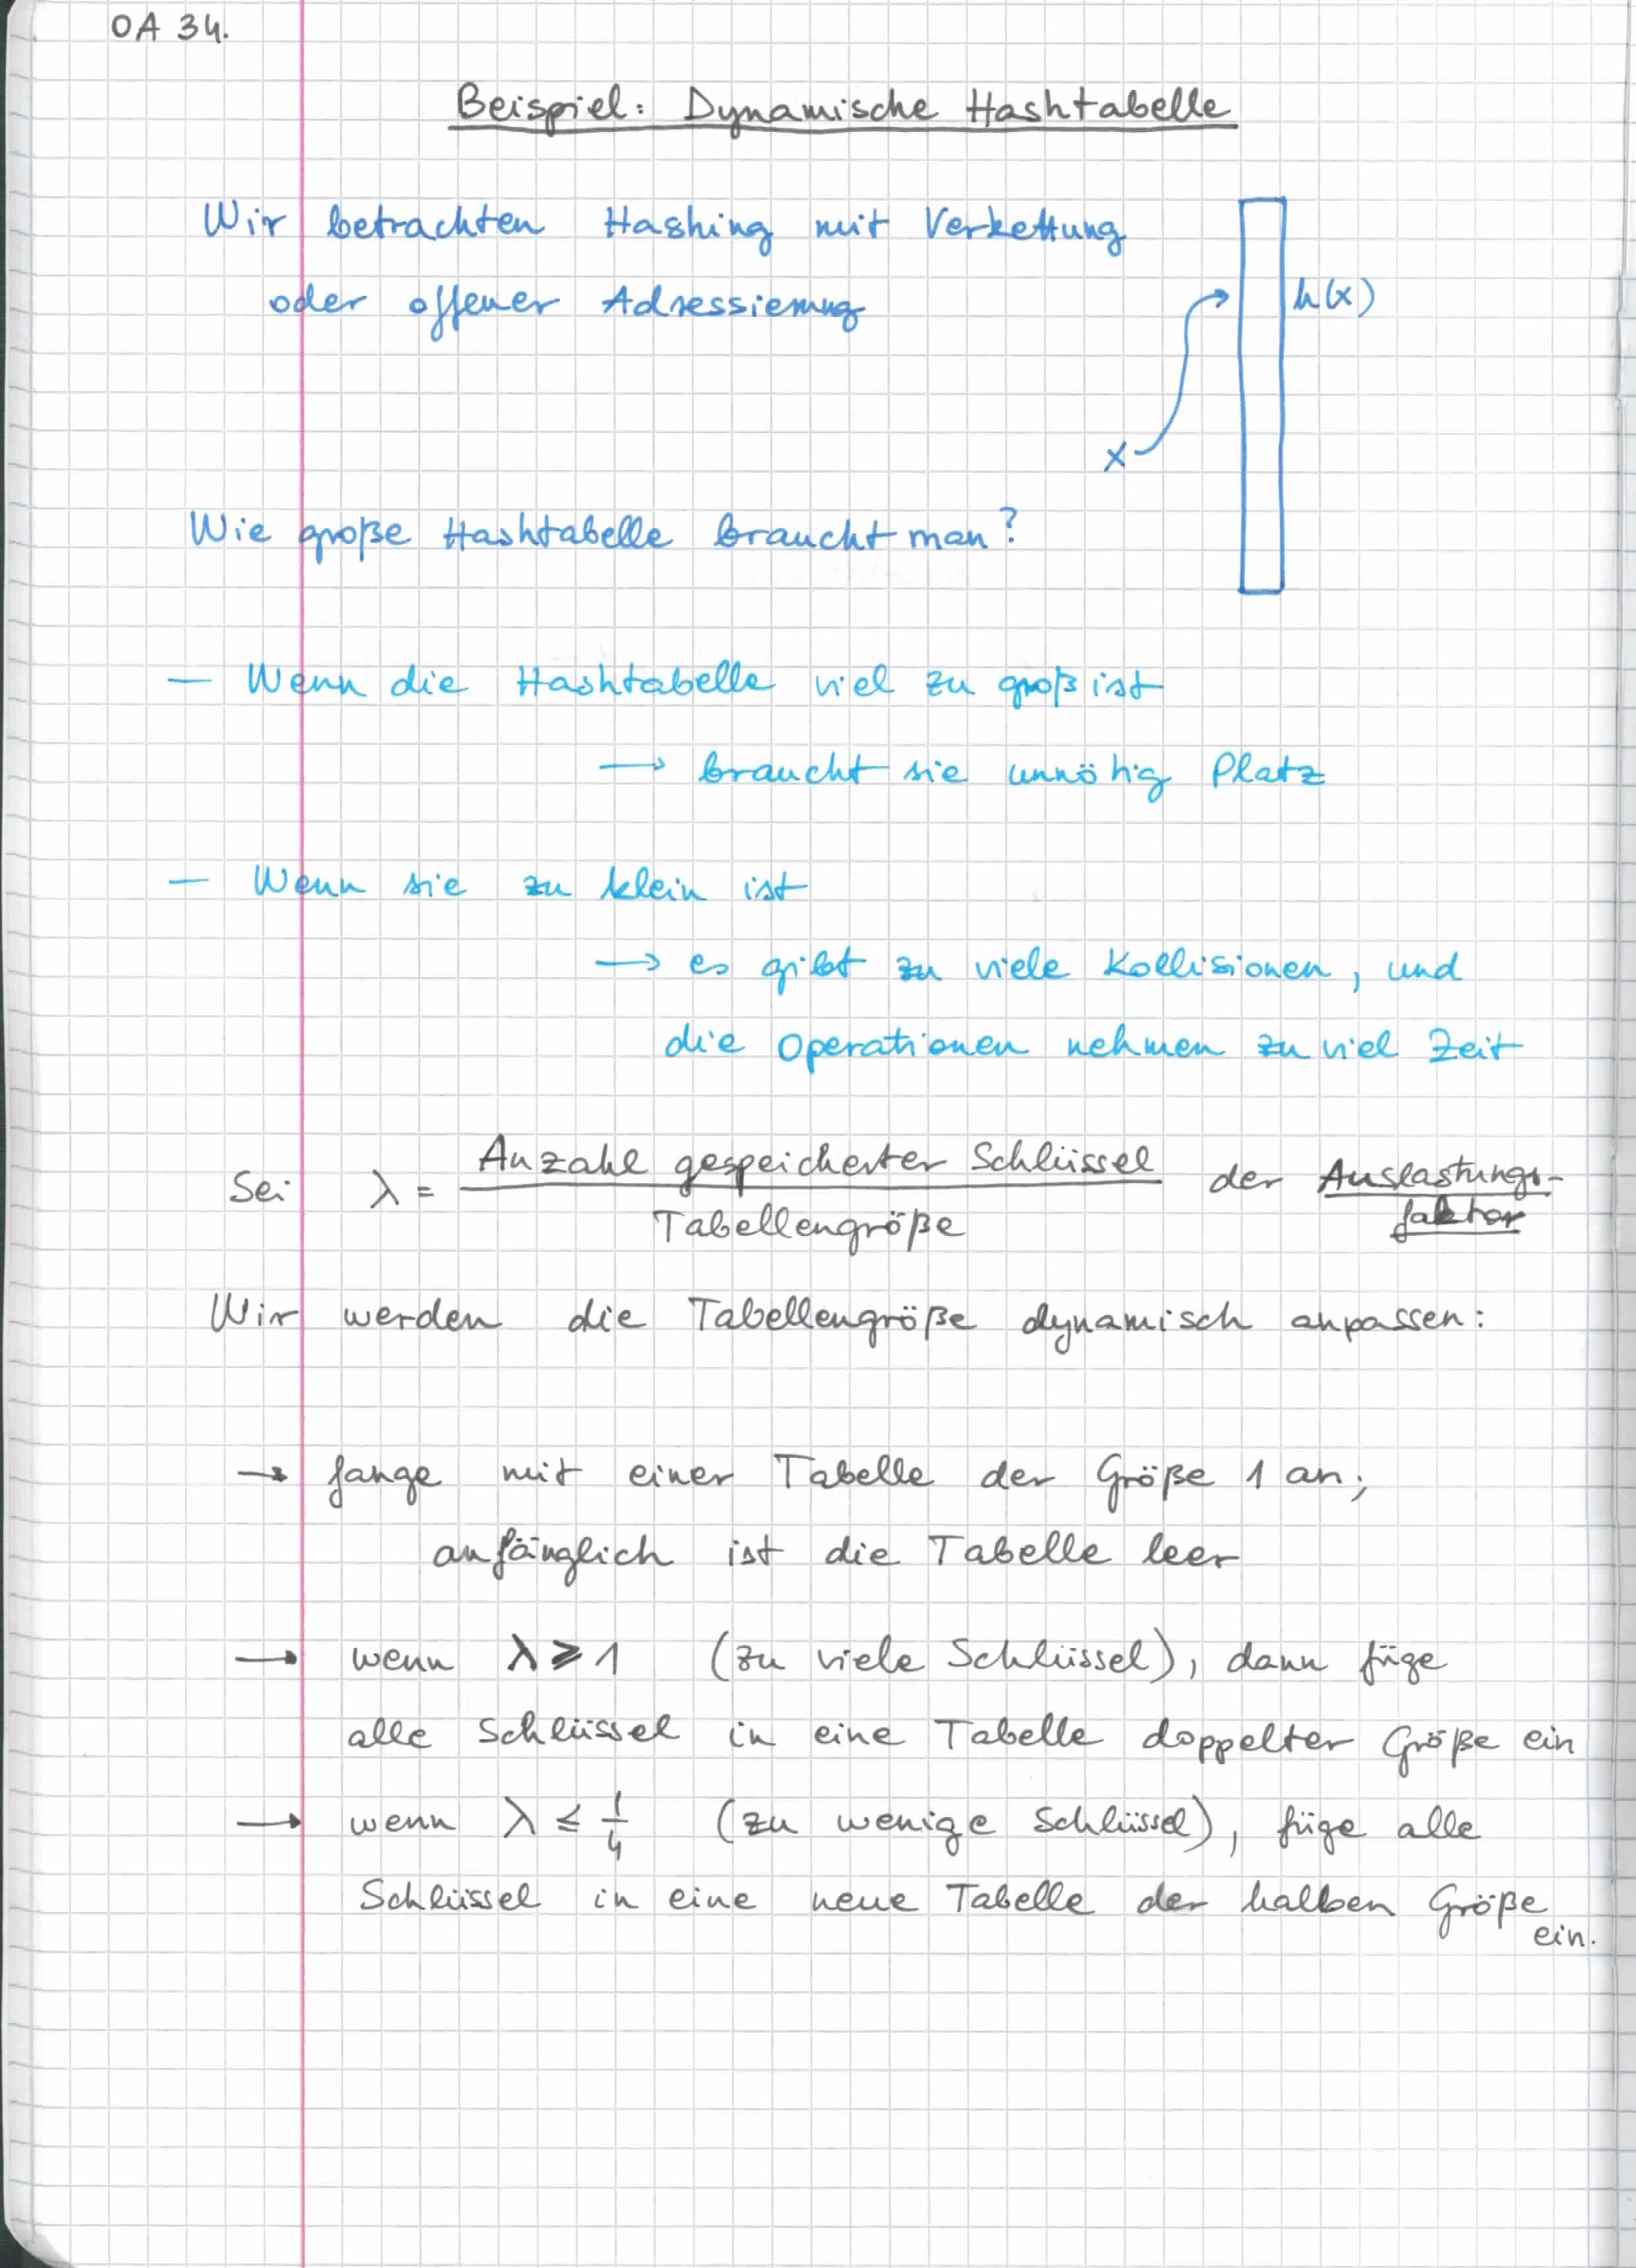 OA 34.
Beispiel: Dynamische Hashtabelle
Wir betrachten Hashing mit Verkettung
oder offener Adressierung
h(x)
x
Wie große Hashtabelle braucht man?
— Wenn die Hashtabelle viel zu groß ist
→ braucht sie unnötig Platz
— Wenn sie zu klein ist
→ es gibt zu viele Kollisionen, und
die Operationen nehmen zu viel Zeit
Sei λ = Anzahl gespeicherter Schlüssel / Tabellengröße der Auslastungs-
faktor
Wir werden die Tabellengröße dynamisch anpassen:
→ fange mit einer Tabelle der Größe 1 an;
anfänglich ist die Tabelle leer
→ wenn λ ≥ 1 (zu viele Schlüssel), dann füge
alle Schlüssel in eine Tabelle doppelter Größe ein
→ wenn λ ≤ 1/4 (zu wenige Schlüssel), füge alle
Schlüssel in eine neue Tabelle der halben Größe
ein.